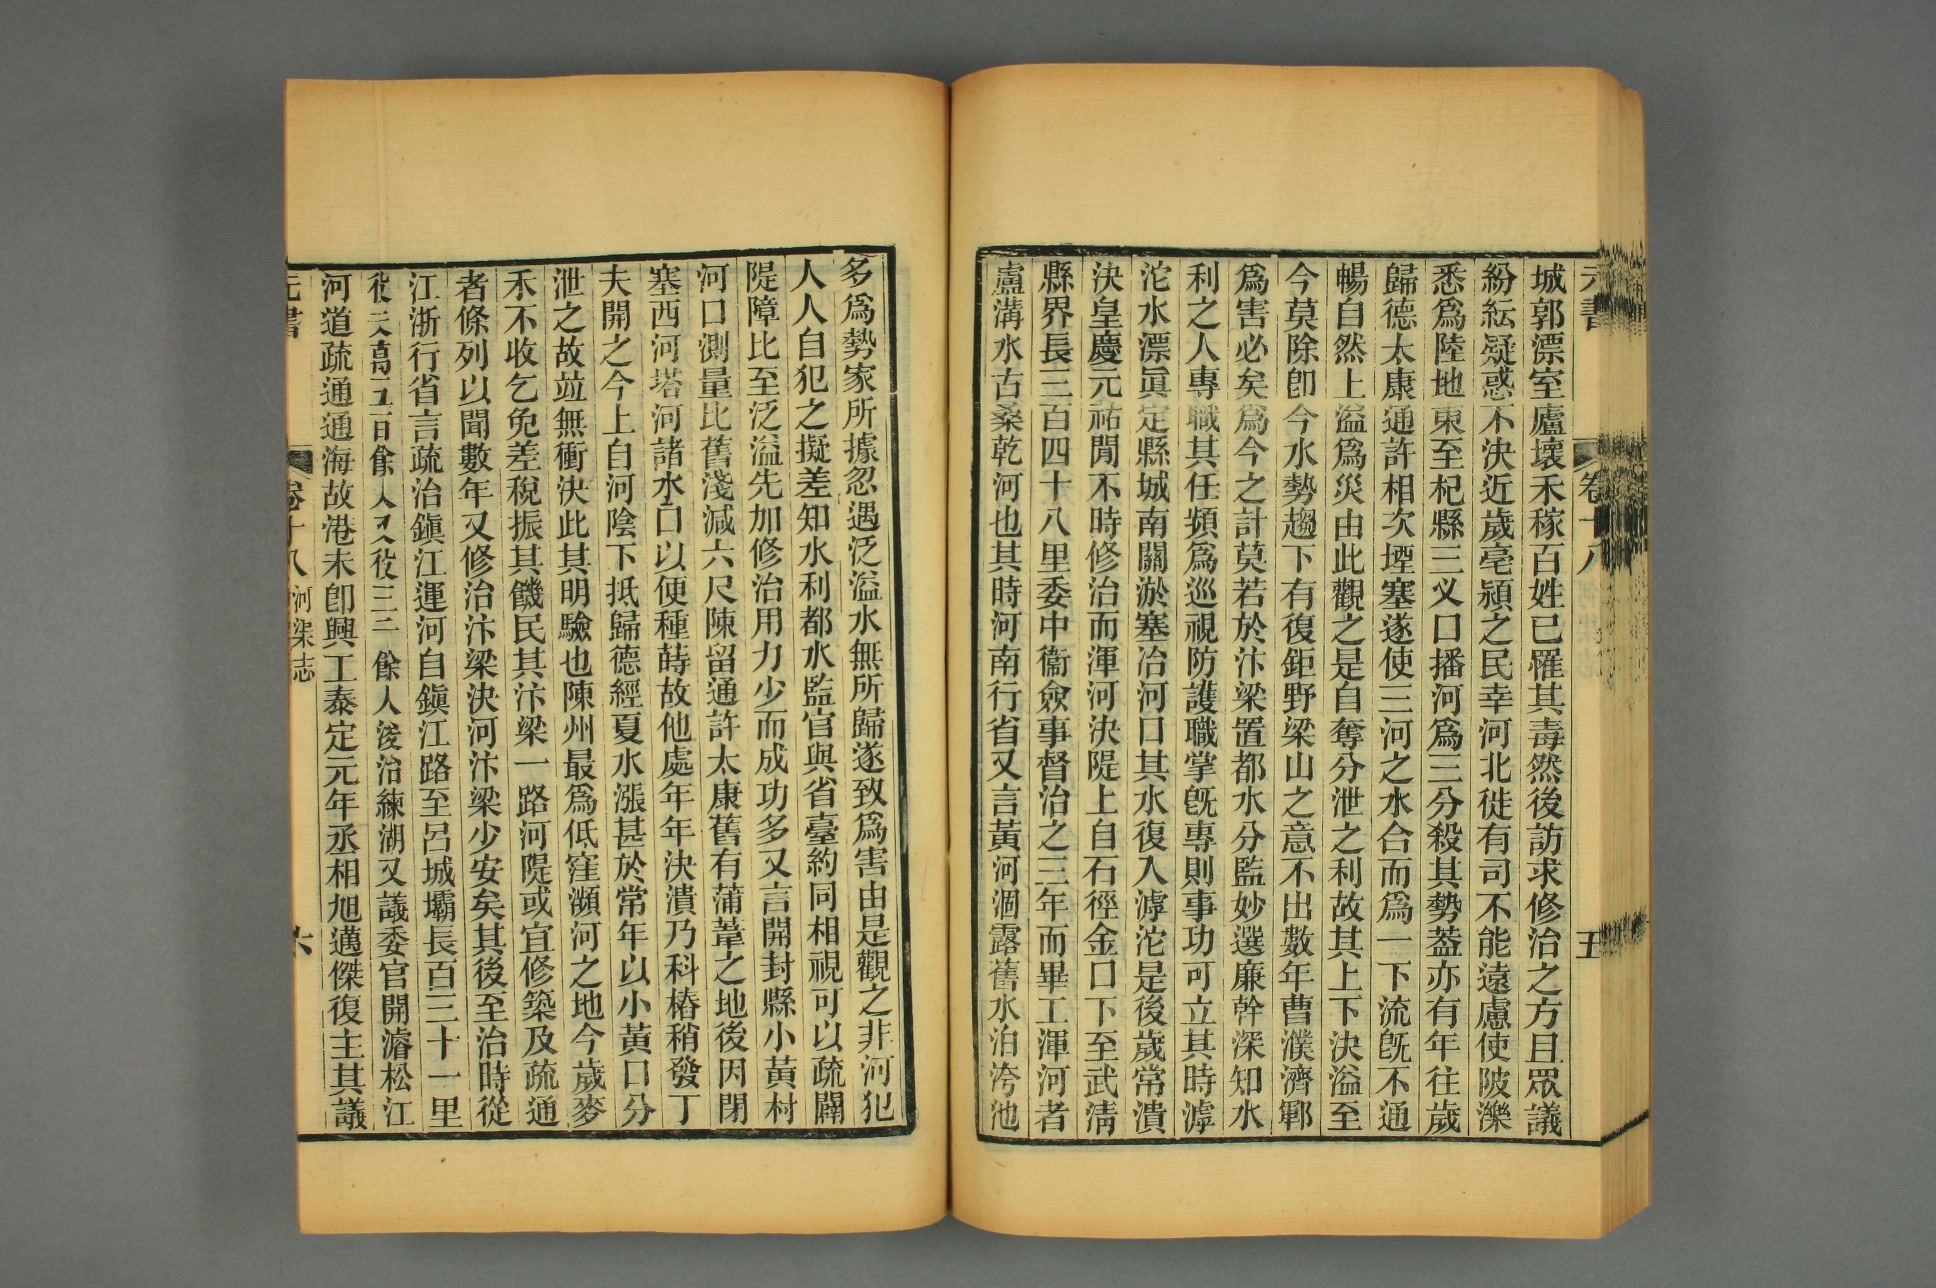 元書 卷十八 五
城郭漂室廬壞禾稼百姓已罹其毒然後訪求修治之方且眾議
紛紜疑惑不決近歲亳潁之民幸河北徙有司不能遠慮使陂濼
悉爲陸地東至杞縣三义口播河爲三分殺其勢葢亦有年往歲
歸德太康通許相次堙塞遂使三河之水合而爲一下流旣不通
暢自然上溢爲災由此觀之是自奪分泄之利故其上下決溢至
今莫除卽今水勢趨下有復鉅野梁山之意不出數年曹濮濟鄆
爲害必矣爲今之計莫若於汴梁置都水分監妙選廉幹深知水
利之人專職其任頻爲巡視防護職掌旣專則事功可立其時滹
沱水漂眞定縣城南關淤塞冶河口其水復入滹沱是後歲常潰
決皇慶元祐閒不時修治而渾河決隄上自石徑金口下至武淸
縣界長三百四十八里委中衞僉事督治之三年而畢工渾河者
盧溝水古桑乾河也其時河南行省又言黃河涸露舊水泊洿池
多爲勢家所據忽遇泛溢水無所歸遂致爲害由是觀之非河犯
人人自犯之擬差知水利都水監官與省臺約同相視可以疏闢
隄障比至泛溢先加修治用力少而成功多又言開封縣小黃村
河口測量比舊淺減六尺陳留通許太康舊有蒲葦之地後因閉
塞西河塔河諸水口以便種蒔故他處年年決潰乃科樁稍發丁
夫開之今上自河陰下抵歸德經夏水漲甚於常年以小黃口分
泄之故竝無衝決此其明驗也陳州最爲低窪瀕河之地今歲麥
禾不收乞免差稅振其饑民其汴梁一路河隄或宜修築及疏通
者條列以聞數年又修治汴梁決河汴梁少安矣其後至治時從
江浙行省言疏治鎭江運河自鎭江路至呂城壩長百三十一里
役夫萬五百餘人又役三千餘人浚治練湖又議委官開濬松江
河道疏通通海故港未卽興工泰定元年丞相旭邁傑復主其議
元書 卷十八 河渠志 六